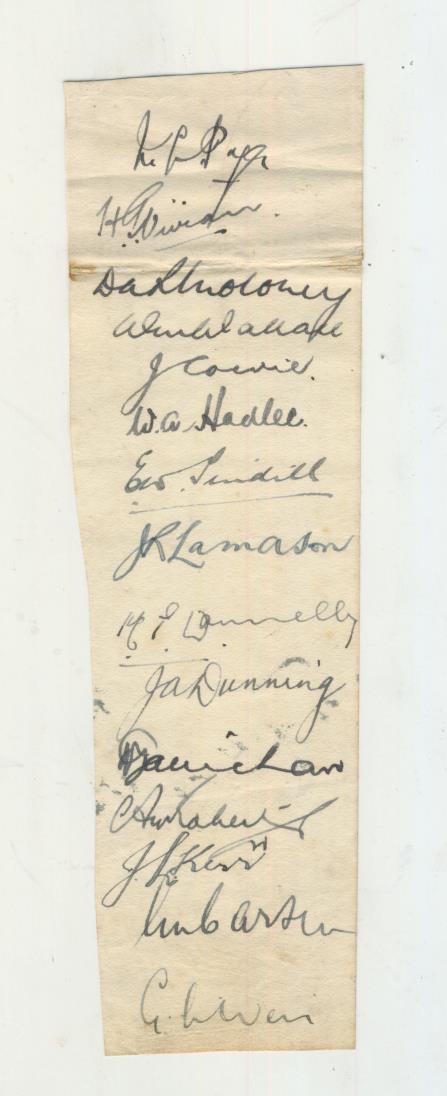 M L Page
H.G. Vivian.
D.A.R. Moloney
W.M. Wallace
J Cowie.
W.A. Hadlee.
E.W. Tindill
J R Lamason
M P Donnelly
J A Dunning
N Gallichan
A.W. Roberts
J. L. Kerr
W Carson
G. L. Weir